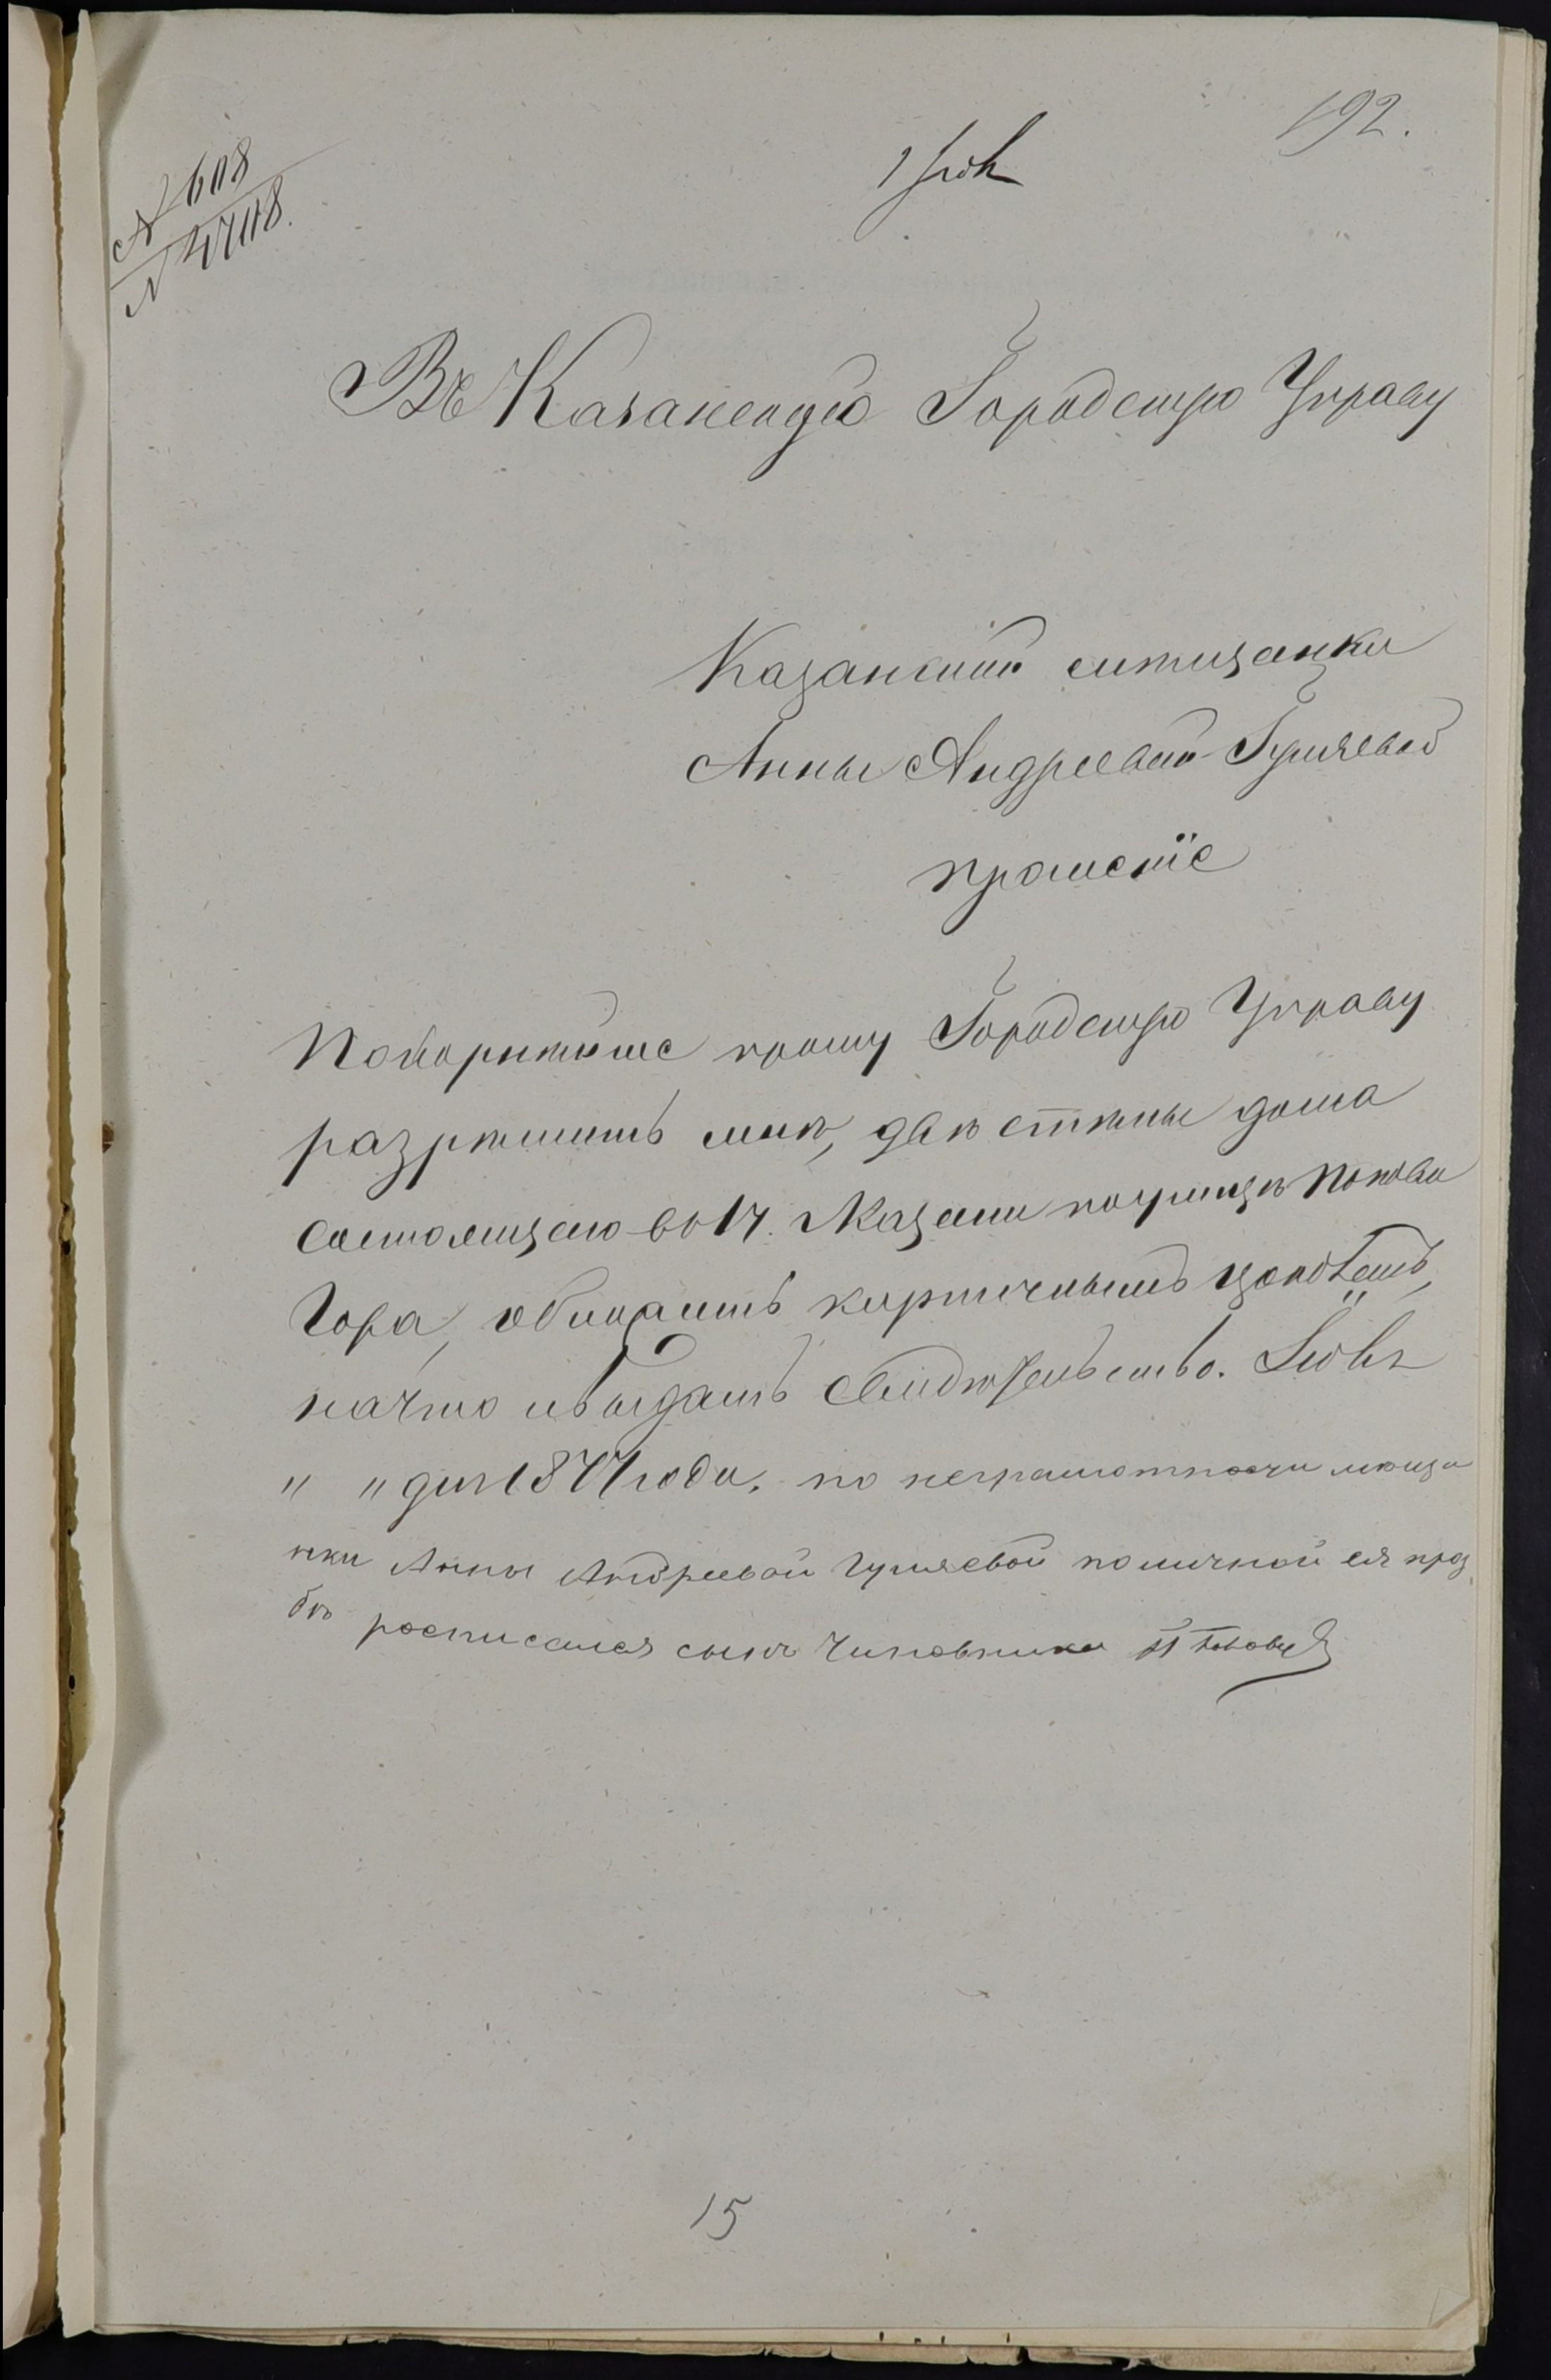 192.
1 Июл
№ 608
№ 4748.
Въ Казанскую Городскую Управу
Казанской мѣщанки
Анны Андреевой Гуляевой
прошеніе
Покорнѣйше прошу Городскую Управу
разрѣшить мнѣ, двѣ стѣны дома
состоящаго въ г. Казани по улицѣ Попова
Гора, обикрать кирпичнымъ цоколемъ,
на что и выдать свидѣтельство. Июля
" " дня 1877 года. по неграмотности мѣща
нки Анны Андреевой Гуляевой по личной ея прoз
бѣ росписался сынъ чиновника П Поповъ
15